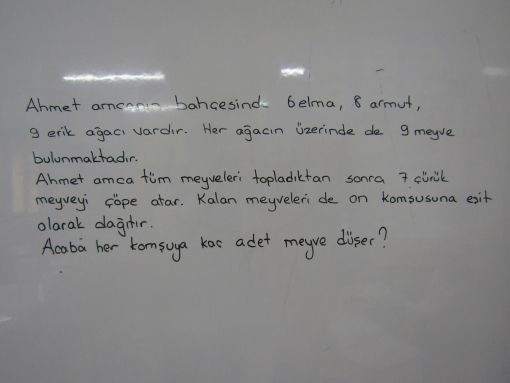 Ahmet amcanın bahçesinde 6 elma, 8 armut,
9 erik ağacı vardır. Her ağacın üzerinde de 9 meyve
bulunmaktadır.
Ahmet amca tüm meyveleri topladıktan sonra 7 çürük
meyveyi çöpe atar. Kalan meyveleri de on komşusuna eşit
olarak dağıtır.
Acaba her komşuya kaç adet meyve düşer?